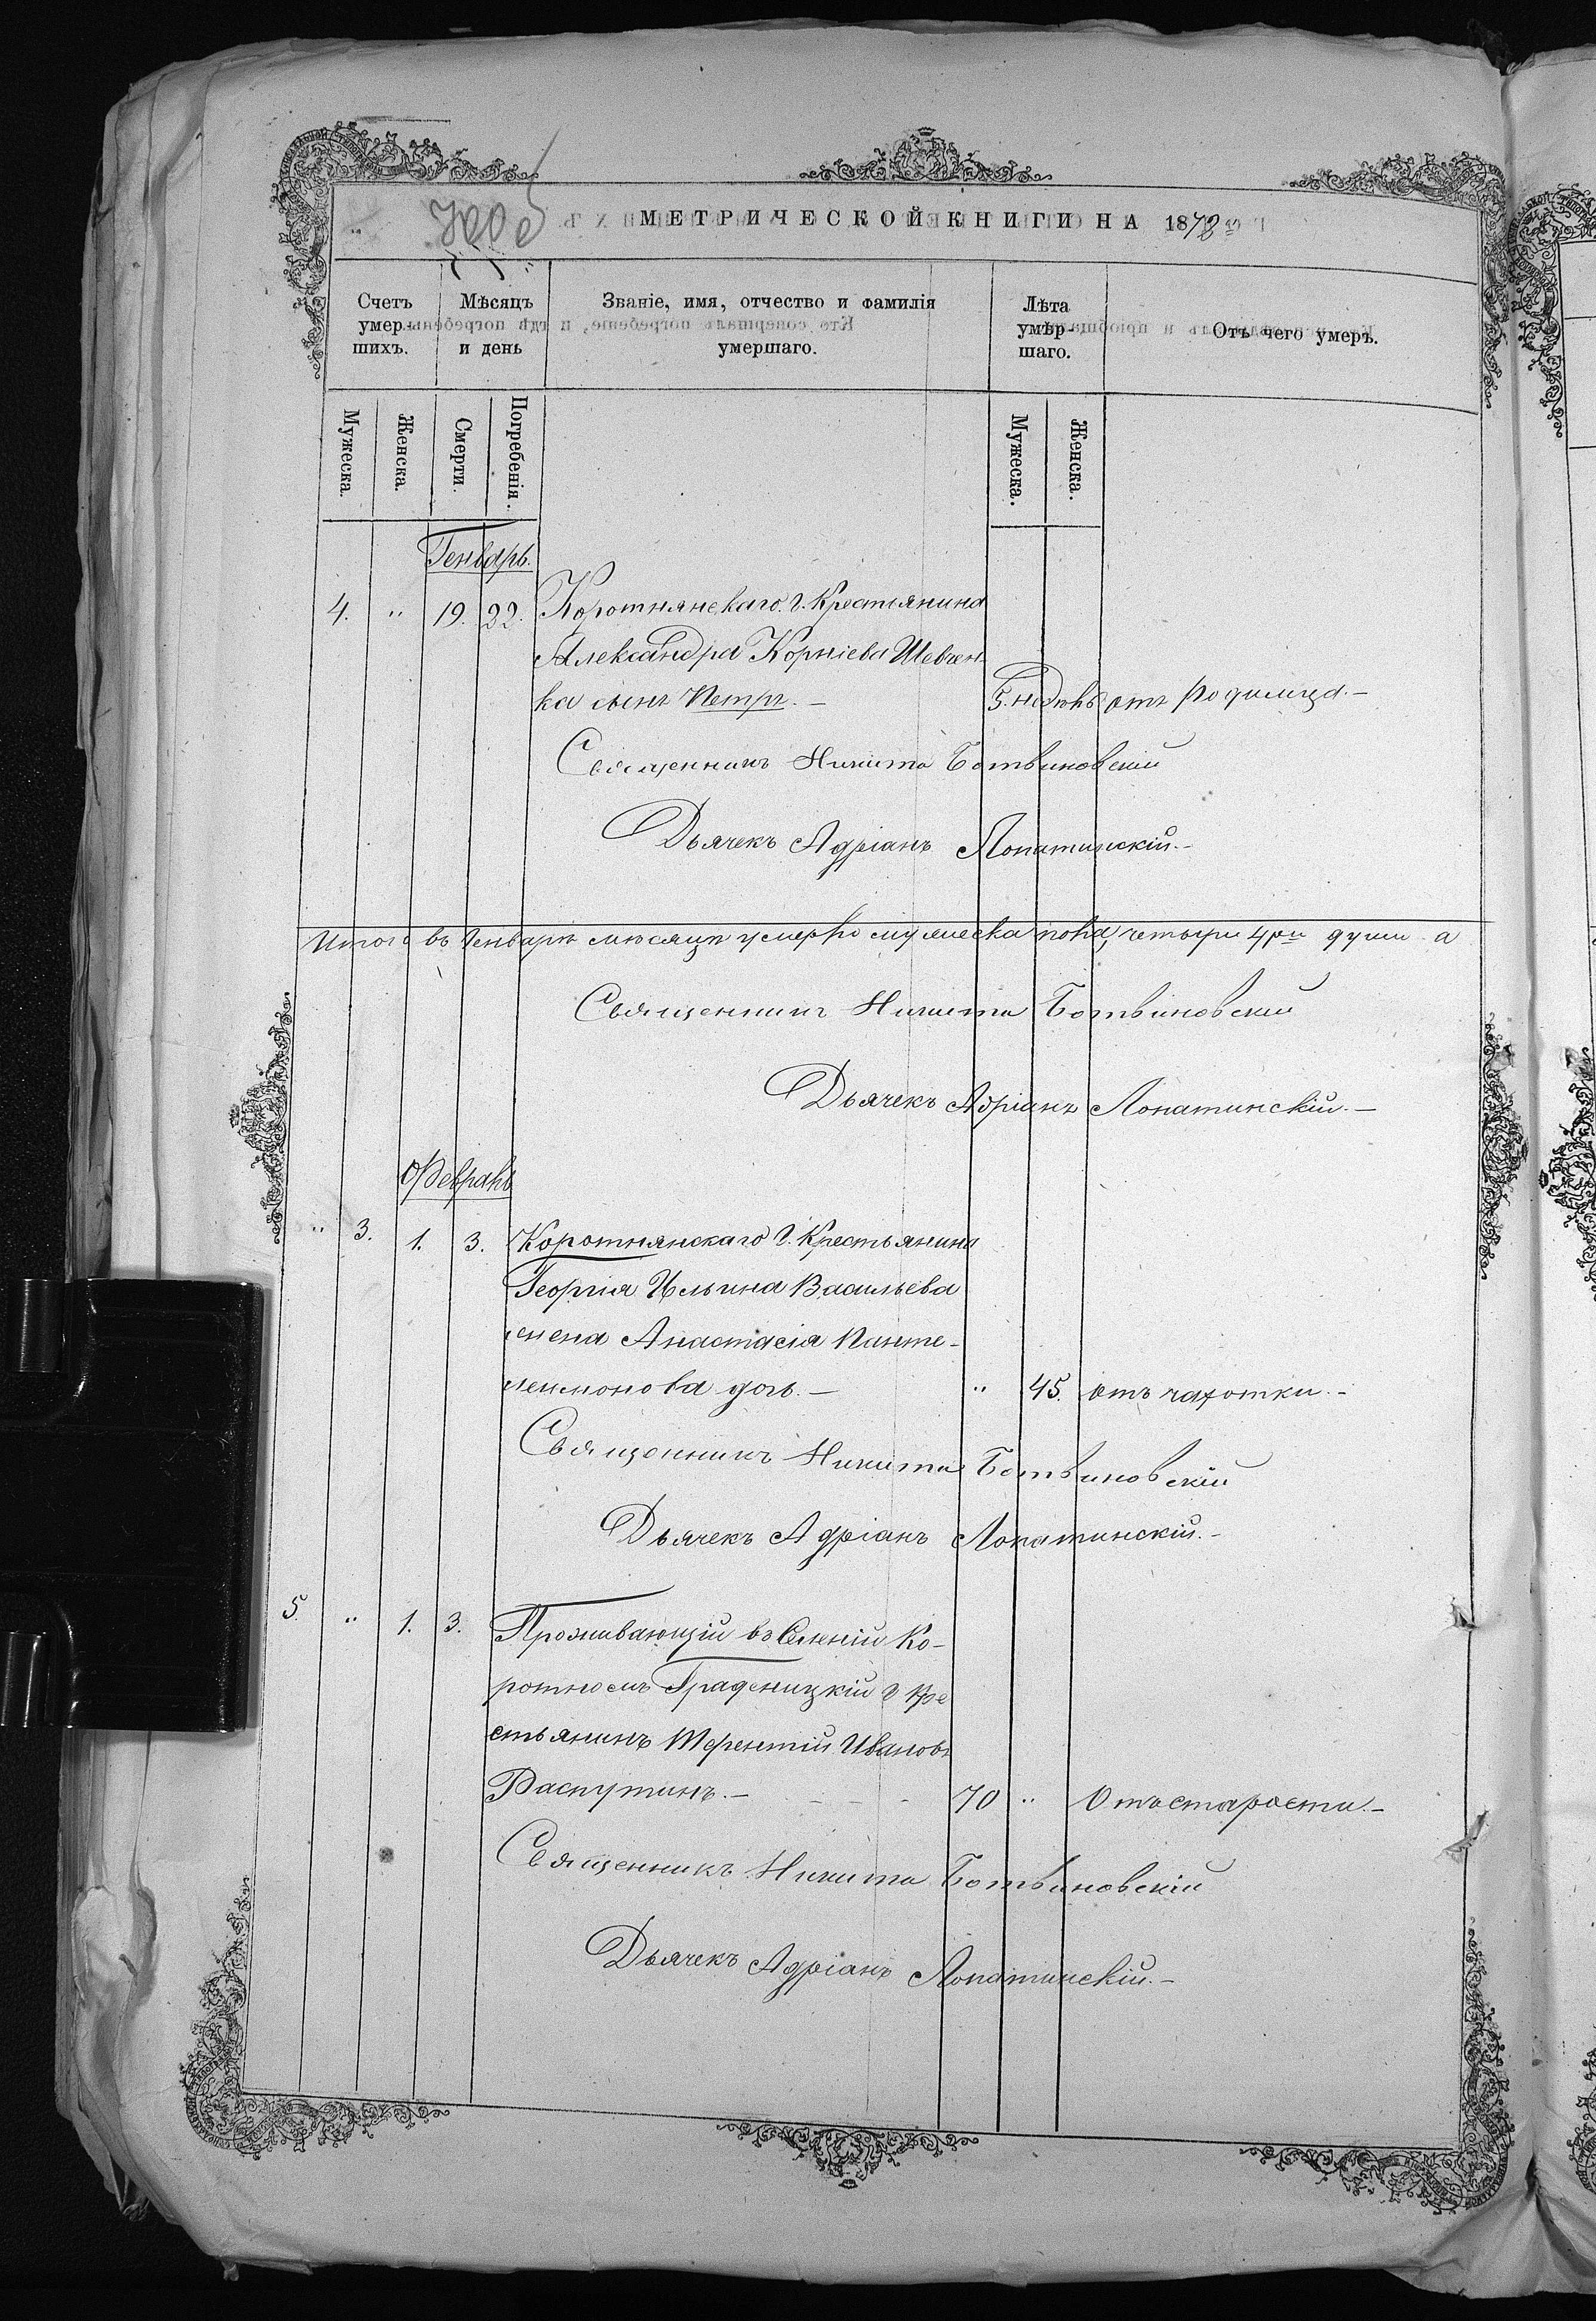 МЕТРИЧЕСКОЙ КНИГИ НА 1878й
Счетъ умер- шихъ.
Мѣсяцъ и день
Званіе, имя, отчество и фамилія умершаго.
Лѣта умер- шаго.
Отъ чего умеръ.
Мужеска.
Женска.
Смерти.
Погребенія.
Мужеска.
Женска.
Генварь.
4. " 19. 22. Коротнянскаго г. Крестьянина
Александра Корніева Шевчен-
ка сынъ Петръ. — 5. недѣль отъ родимца. —
Священникъ Никита Ботвиновскій
Дьячекъ Адріанъ Лопатинскій. —
Итого въ Генварѣ мѣсяцѣ умерло мужеска пола, четыри 4ри души а
Священникъ Никита Ботвиновскій
Дьячекъ Адріанъ Лопатинскій. —
Февраль
" 3. 1. 3. Коротнянскаго г. Крестьянина
Георгія Ильина Васильева
жена Анастасія Панте-
леимонова дочь. — " 45. отъ чахотки. —
Священникъ Никита Ботвиновскій
Дьячекъ Адріанъ Лопатинскій. —
5. " 1. 3. Проживающій въ Селеніи Ко-
ротномъ Граденицкій г Кре
стьянинъ Терентій Ивановъ
Распутинъ. — 70 " Отъ старости. —
Священникъ Никита Ботвиновскій
Дьячекъ Адріанъ Лопатинскій. —